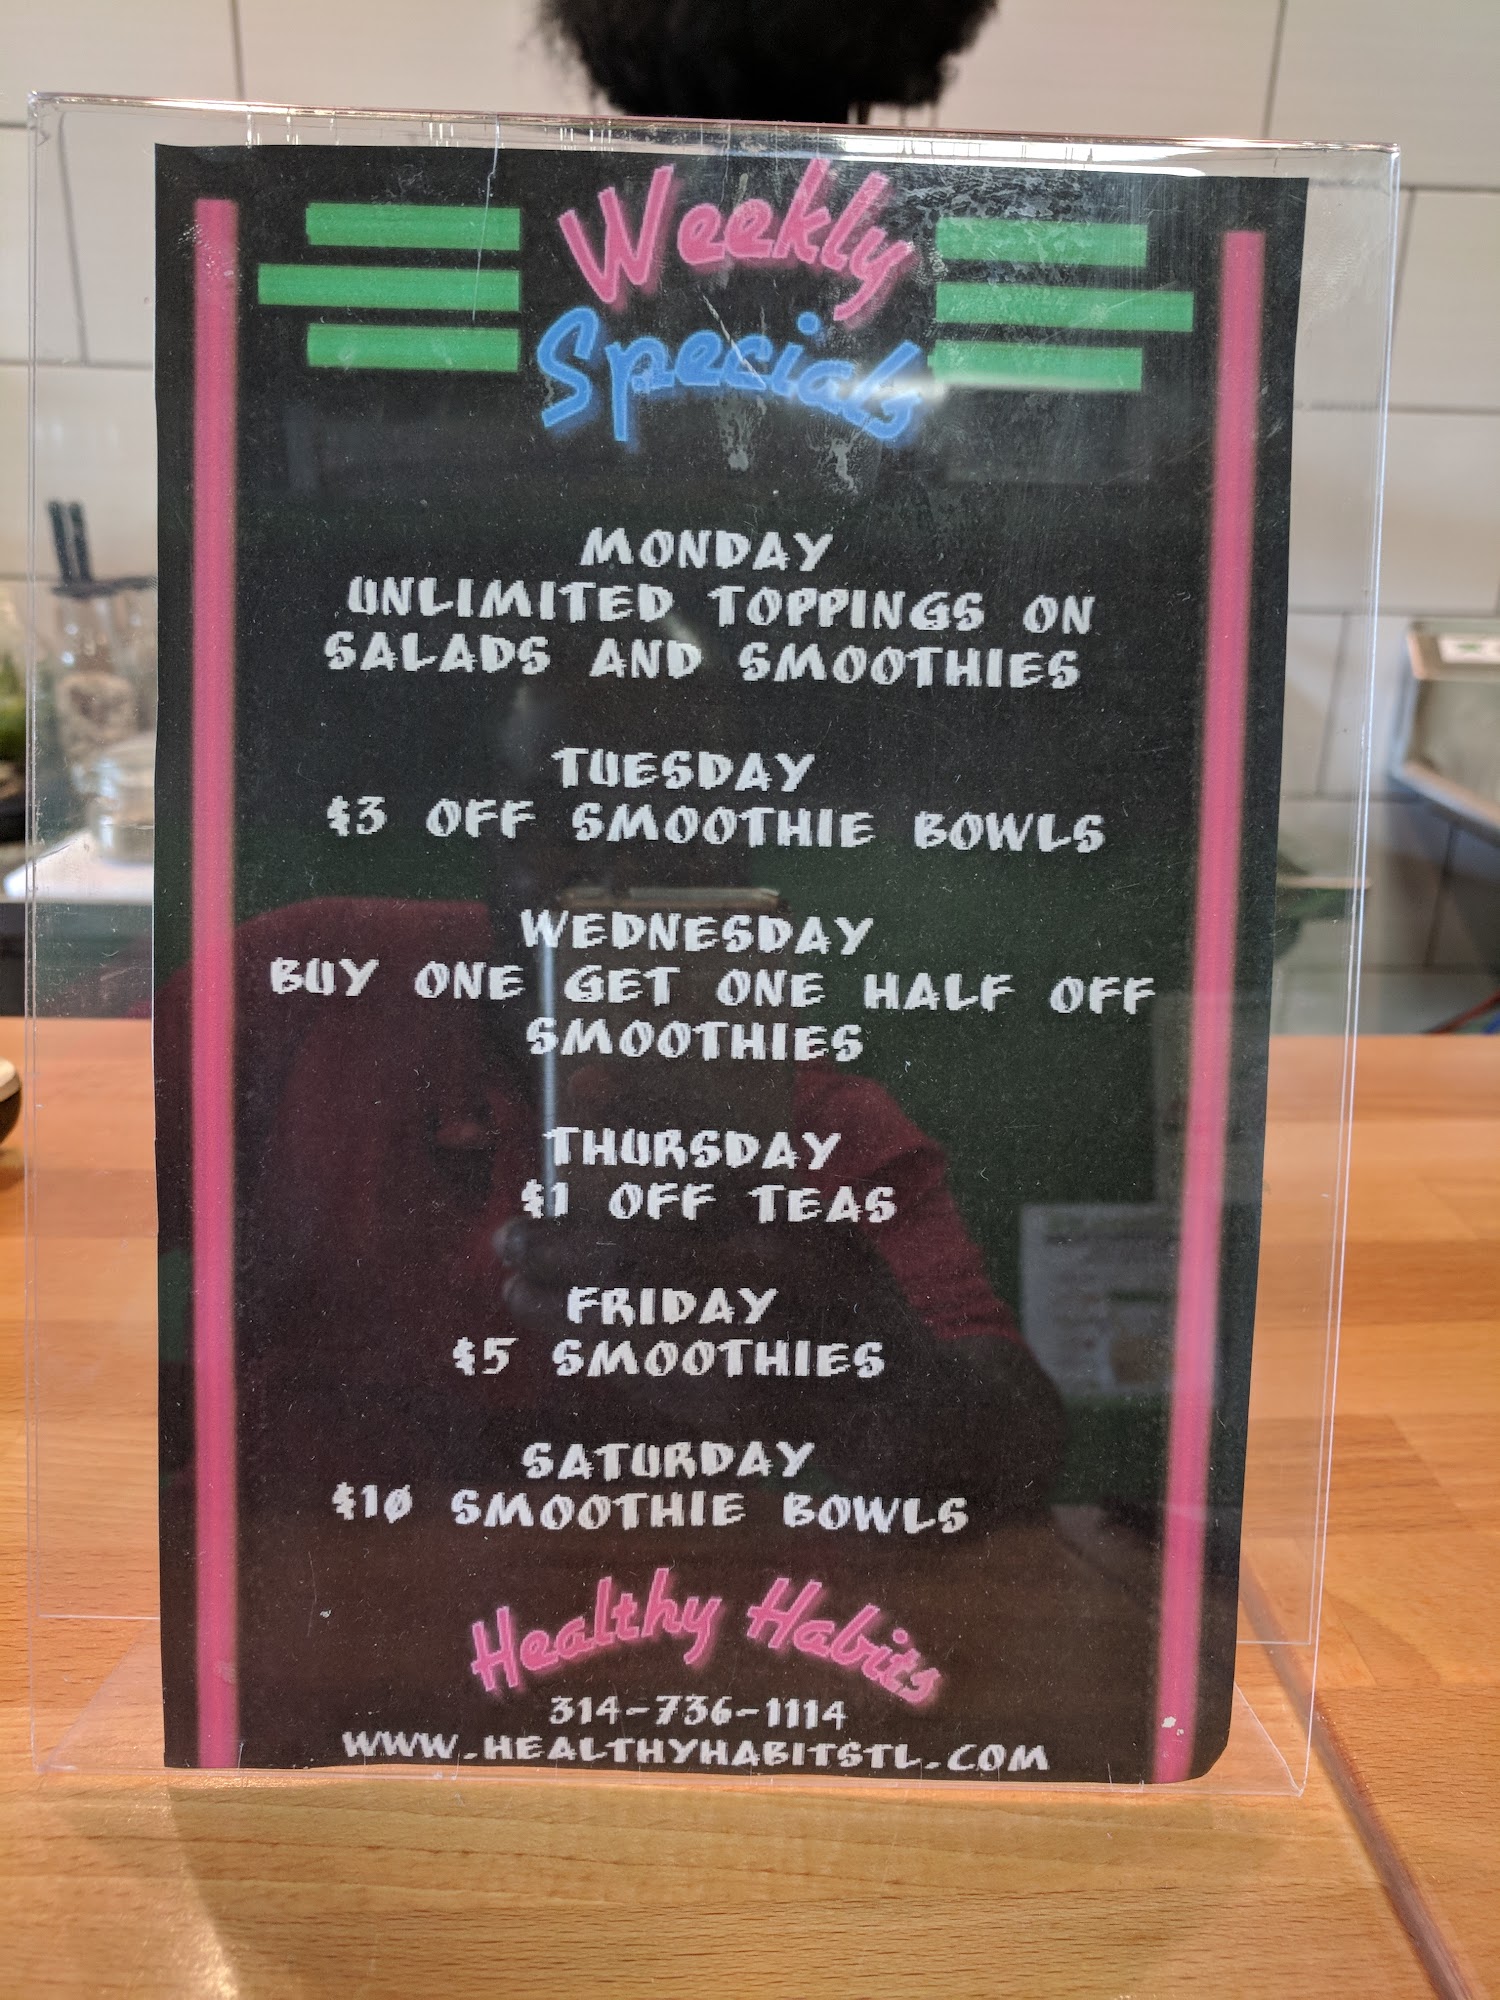 Weekly
Specials
MONDAY
UNLIMITED TOPPINGS ON
SALADS AND SMOOTHIES
TUESDAY
$3 OFF SMOOTHIE BOWLS
WEDNESDAY
BUY ONE GET ONE HALF OFF
SMOOTHIES
THURSDAY
$1 OFF TEAS
FRIDAY
$5 SMOOTHIES
SATURDAY
$10 SMOOTHIE BOWLS
Healthy Habits
314-736-1114
WWW.HEALTHYHABITSTL.COM